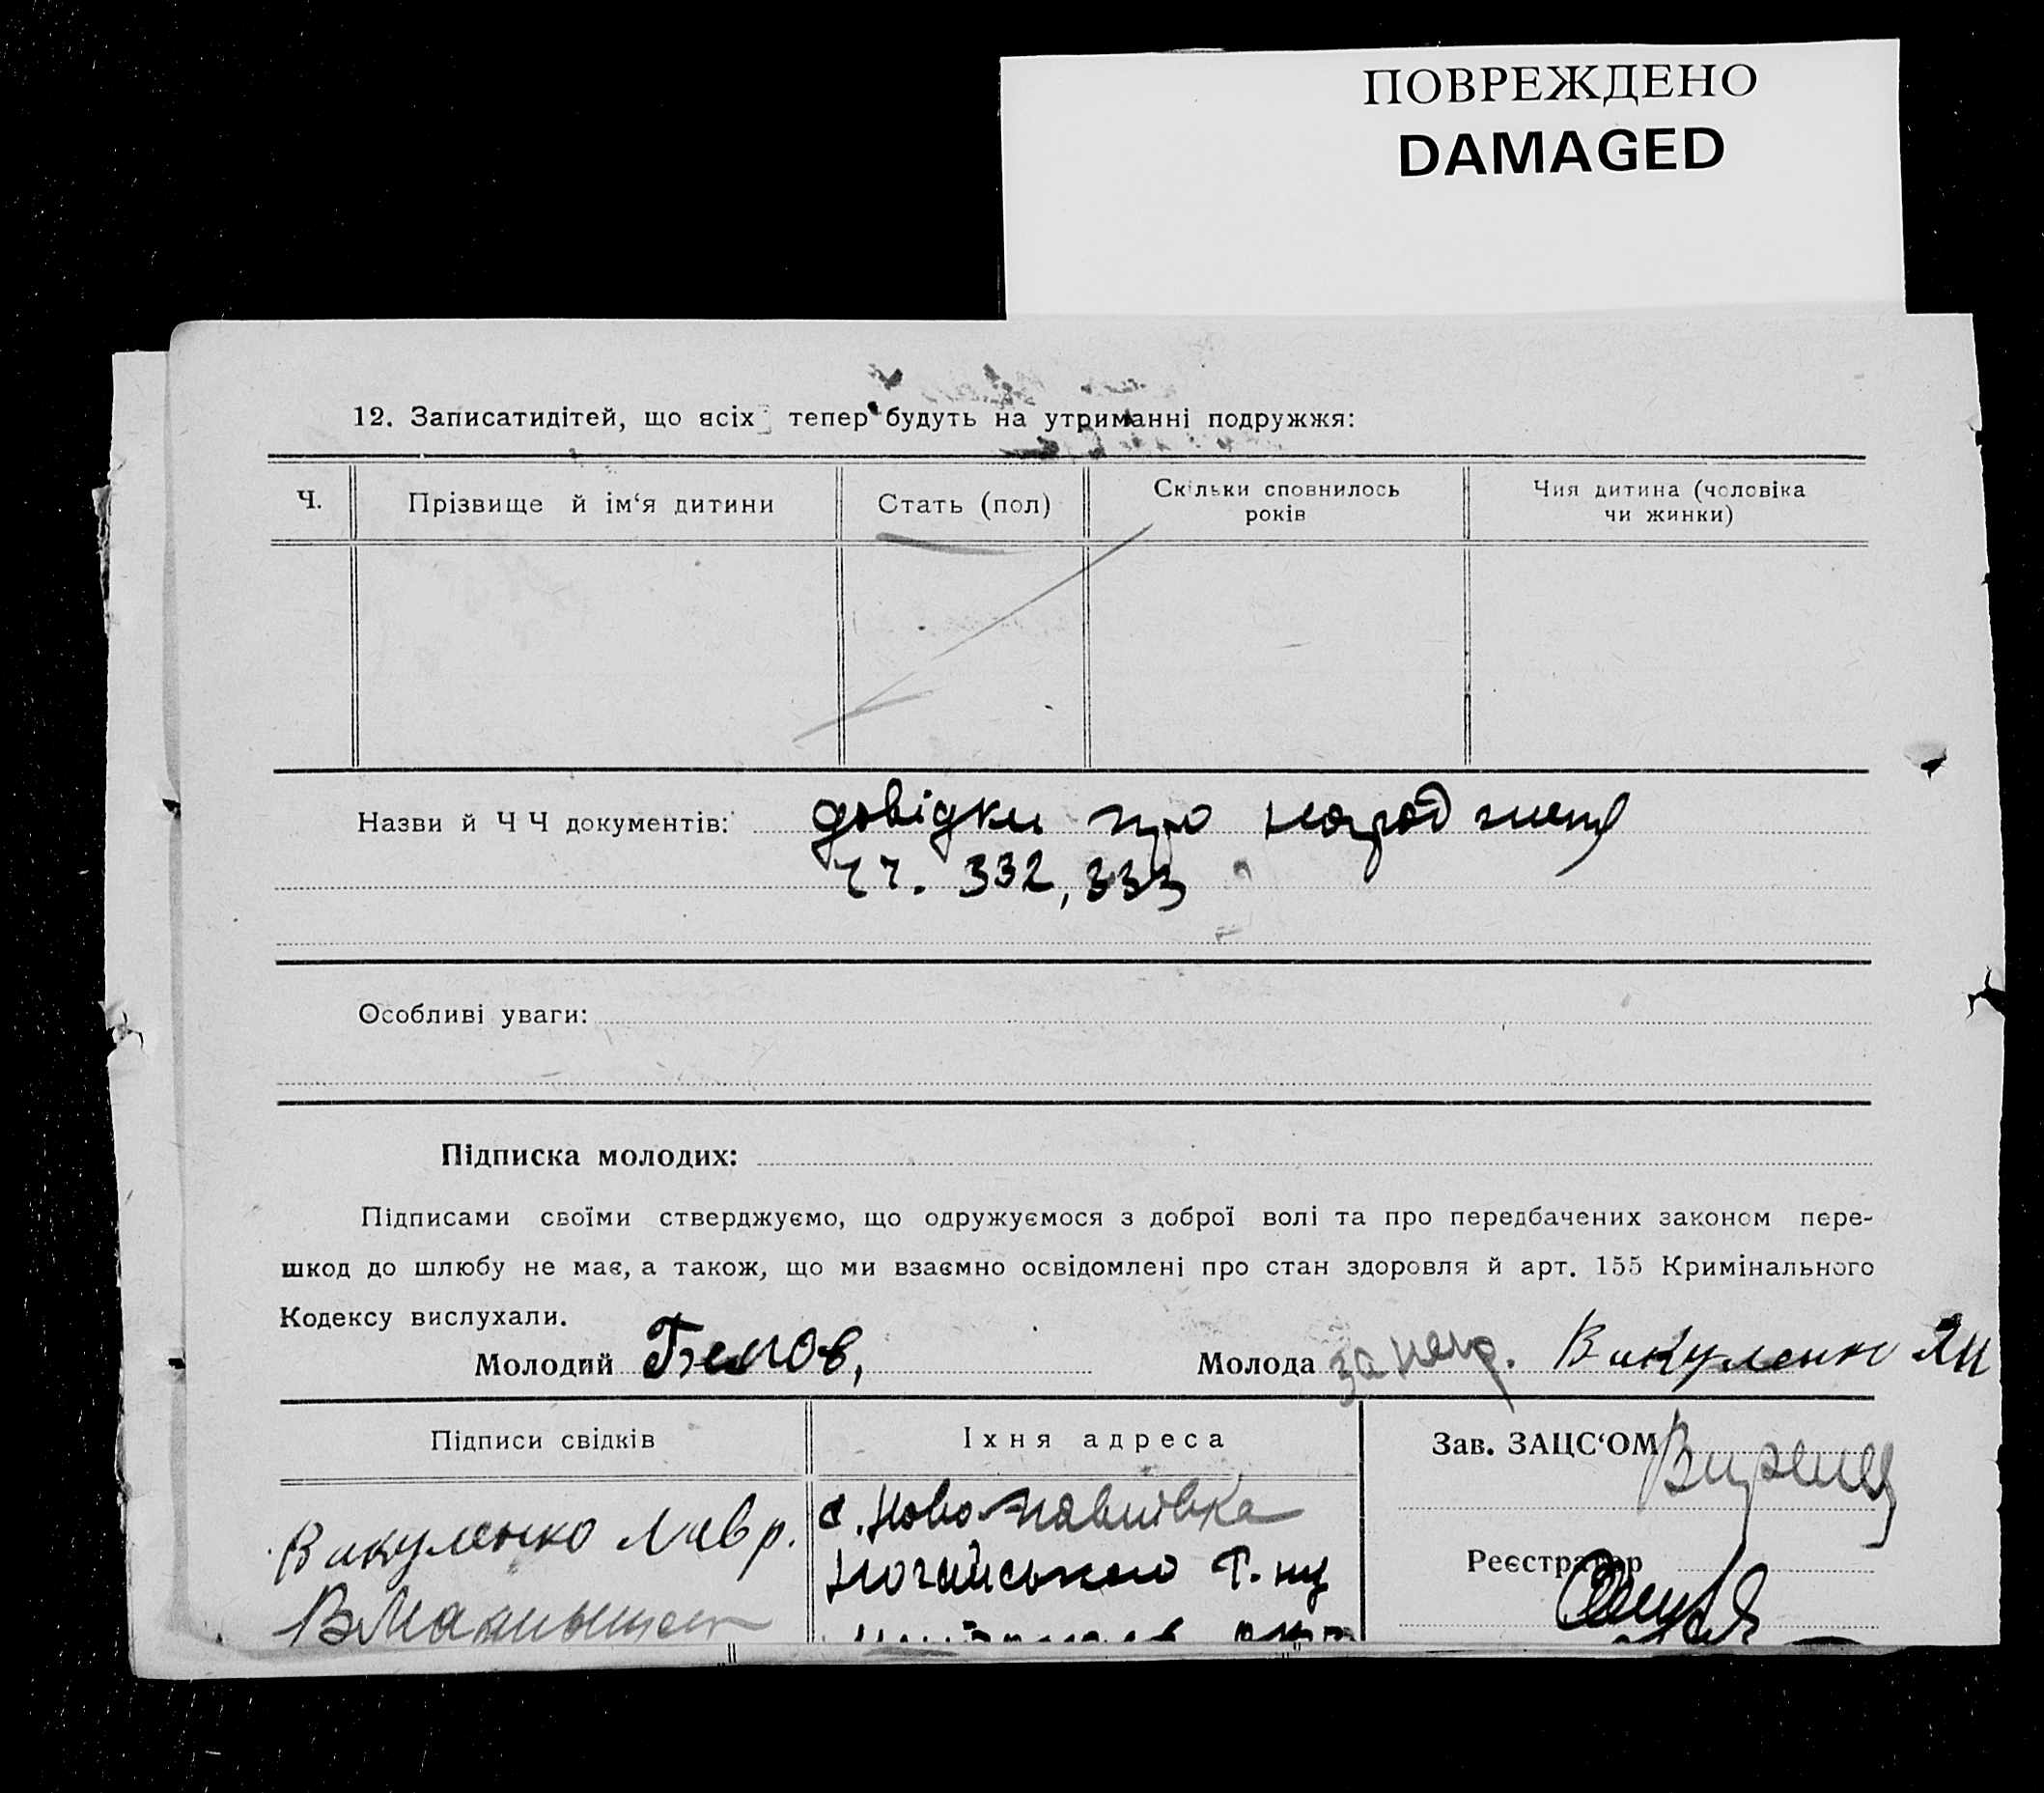 ПОВРЕЖДЕНО
DAMAGED
12. Записатидітей, що всіх тепер будуть на утриманні подружжя:
Ч.
Прізвище й ім‘я дитини
Стать (пол)
Скільки сповнилось
років
Чия дитина (чоловіка
чи жинки)
Назви й Ч Ч документів: довідки про народження
чч. 332, 333
Особливі уваги:
Підписка молодих:
Підписами своїми стверджуємо, що одружуємося з доброї волі та про передбачених законом пере-
шкод до шлюбу не має, а також, що ми взаємно освідомлені про стан здоровля й арт. 155 Кримінального
Кодексу вислухали.
Молодий Белов,
Молода за непр. Викуленко
Підписи свідків
Іхня адреса
Зав. ЗАЦС‘ОМ
Викуленко Лавр.
с. Ново Павлівка
Ногайського Р. ну
Реєстратор